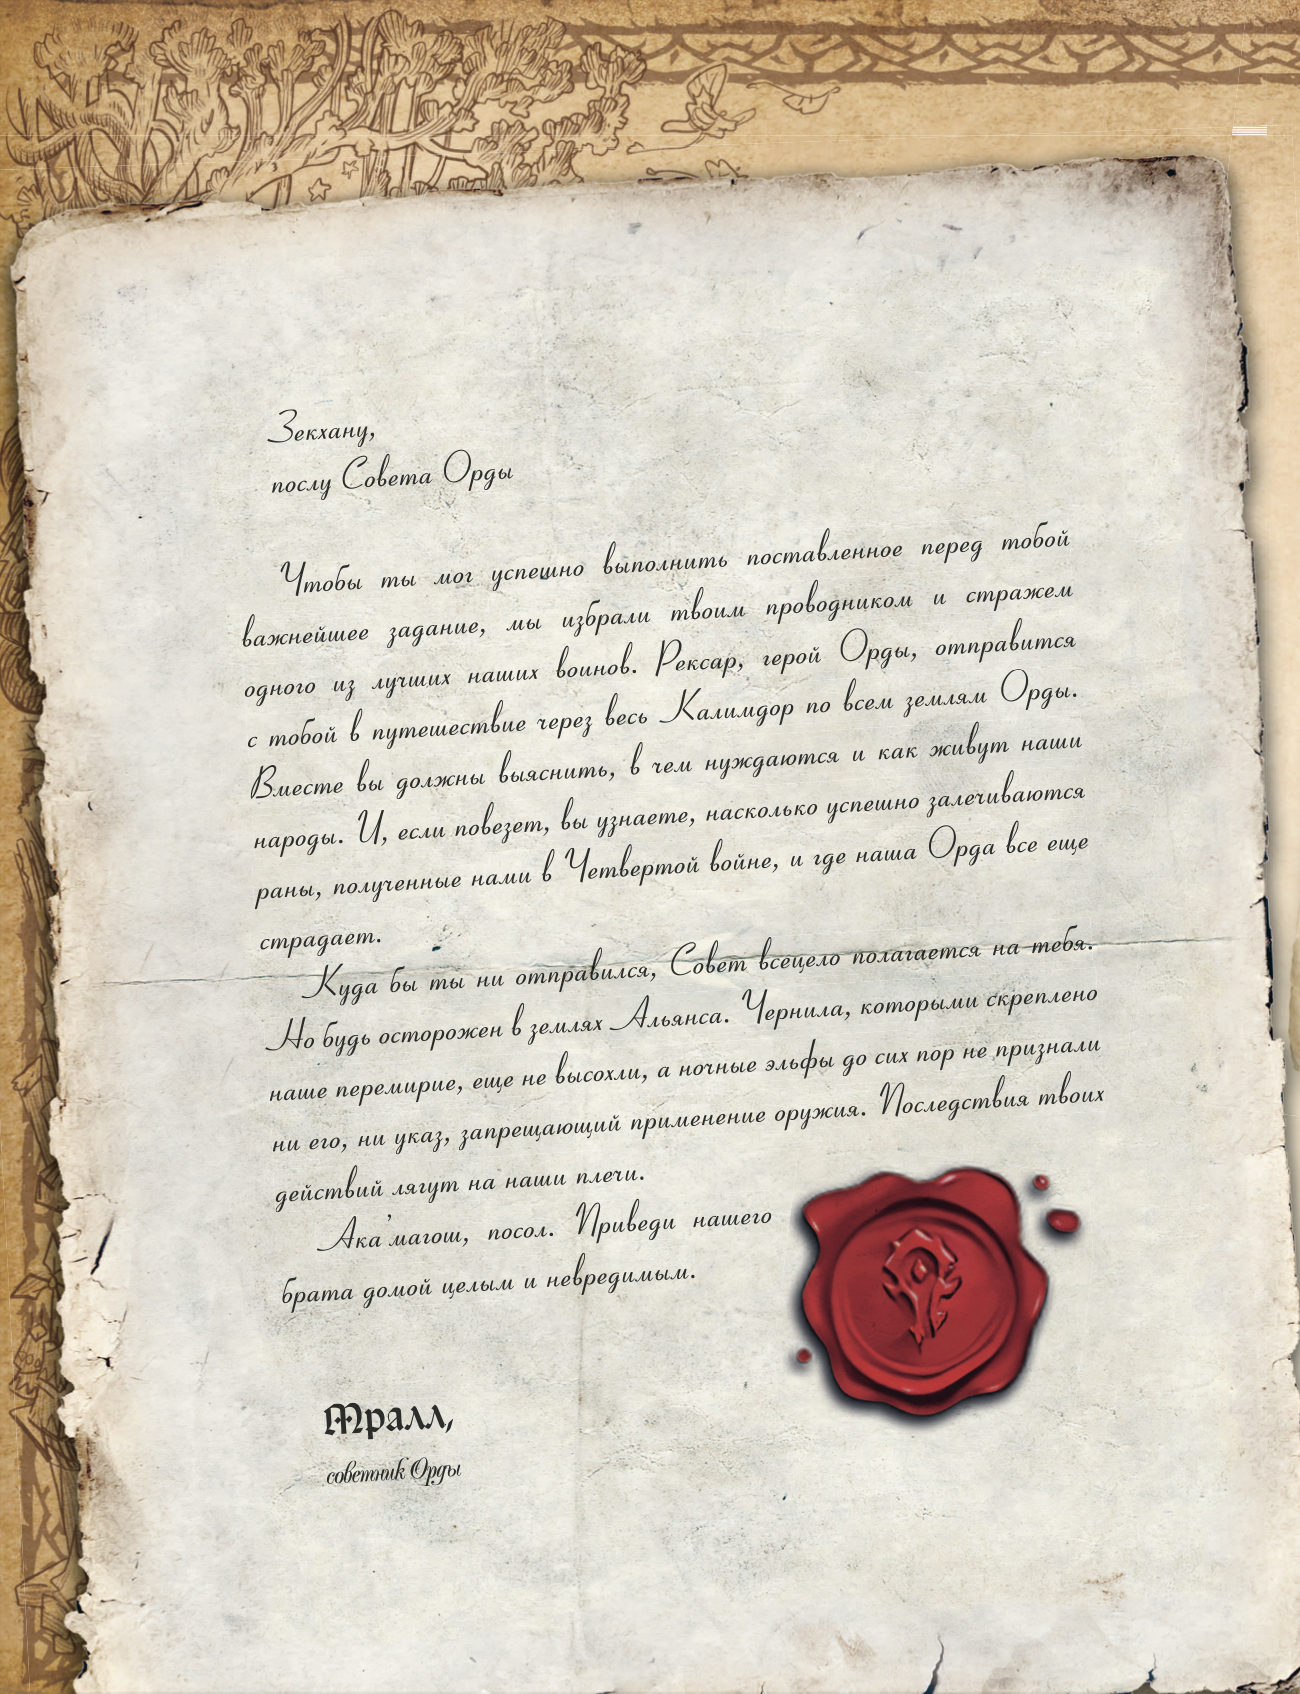 Зекхану,
послу Совета Орды
Чтобы ты мог успешно выполнить поставленное перед тобой
важнейшее задание, мы избрали твоим проводником и стражем
одного из лучших наших воинов. Рексар, герой Орды, отправится
с тобой в путешествие через весь Калимдор по всем землям Орды.
Вместе вы должны выяснить, в чем нуждаются и как живут наши
народы. И, если повезет, вы узнаете, насколько успешно залечиваются
раны, полученные нами в Четвертой войне, и где наша Орда все еще
страдает.
Куда бы ты ни отправился, Совет всецело полагается на тебя.
Но будь осторожен в землях Альянса. Чернила, которыми скреплено
наше перемирие, еще не высохли, а ночные эльфы до сих пор не признали
ни его, ни указ, запрещающий применение оружия. Последствия твоих
действий лягут на наши плечи.
Ака'магош, посол. Приведи нашего
брата домой целым и невредимым.
Тралл,
советник Орды